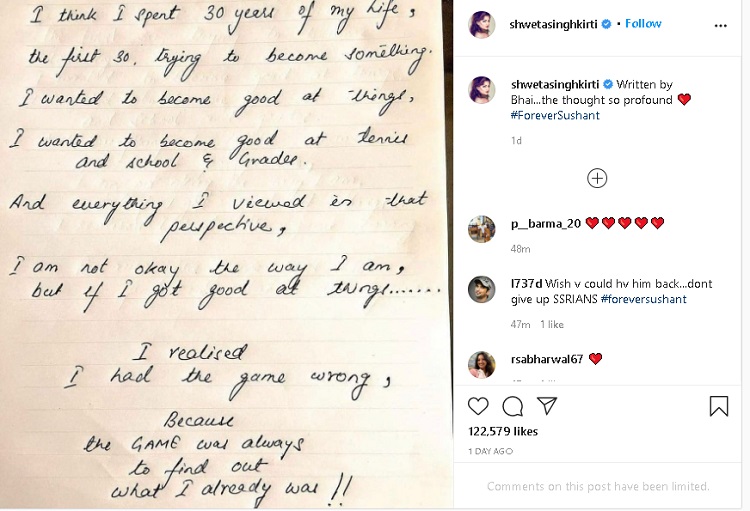 I think I spent 30 years of my life,
the first 30, trying to become something.
I wanted to become good at things,
I wanted to become good at tennis
and school & Grades.
And everything I viewed in that
perspective,
I am not okay the way I am,
but if I got good at things.......
I realised
I had the game wrong,
Because
the GAME was always
to find out
what I already was !!
shwetasinghkirti • Follow
shwetasinghkirti Written by
Bhai...the thought so profound ❤️
#ForeverSushant
1d
p__barma_20 ❤️❤️❤️❤️❤️
48m
l737d Wish v could hv him back...dont
give up SSRIANS #foreversushant
47m 1 like
rsabharwal67 ❤️
122,579 likes
1 DAY AGO
Comments on this post have been limited.